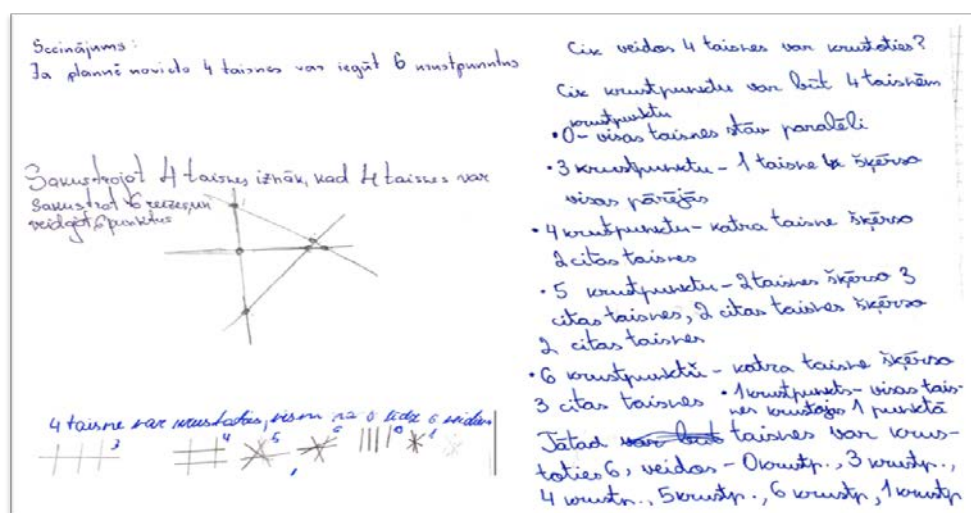 Secinājums:
Ja plaknē novieto 4 taisnes var iegūt 6 krustpunktus
Sakustrojot 4 taisnes iznāk, kad 4 taisnes var
sakustrot 6 reizes, un
veidojot 6 punktus
4 taisne var krustoties, vism no 0 līdz 6 veidiem
3
4
5
6
0
1
Cik veidos 4 taisnes var krustoties?
Cik krustpunktu var būt 4 taisnēm
krustpunktu
• 0 – visas taisnes stāv paralēli
• 3 krustpunktu – 1 taisne šķērso
visas pārējās
• 4 krustpunktu – katra taisne šķērso
2 citas taisnes
• 5 krustpunktu – 2 taisnes šķērso 3
citas taisnes, 2 citas taisnes šķērso
2 citas taisnes
• 6 krustpunkti – katra taisne šķērso
3 citas taisnes
• 1 krustpunkts – visas tais-
nes krustojas 1 punktā
Tātad taisnes var krus-
toties 6, veidos – 0 krustp., 3 krustp.,
4 krustp., 5 krustp., 6 krustp, 1 krustp